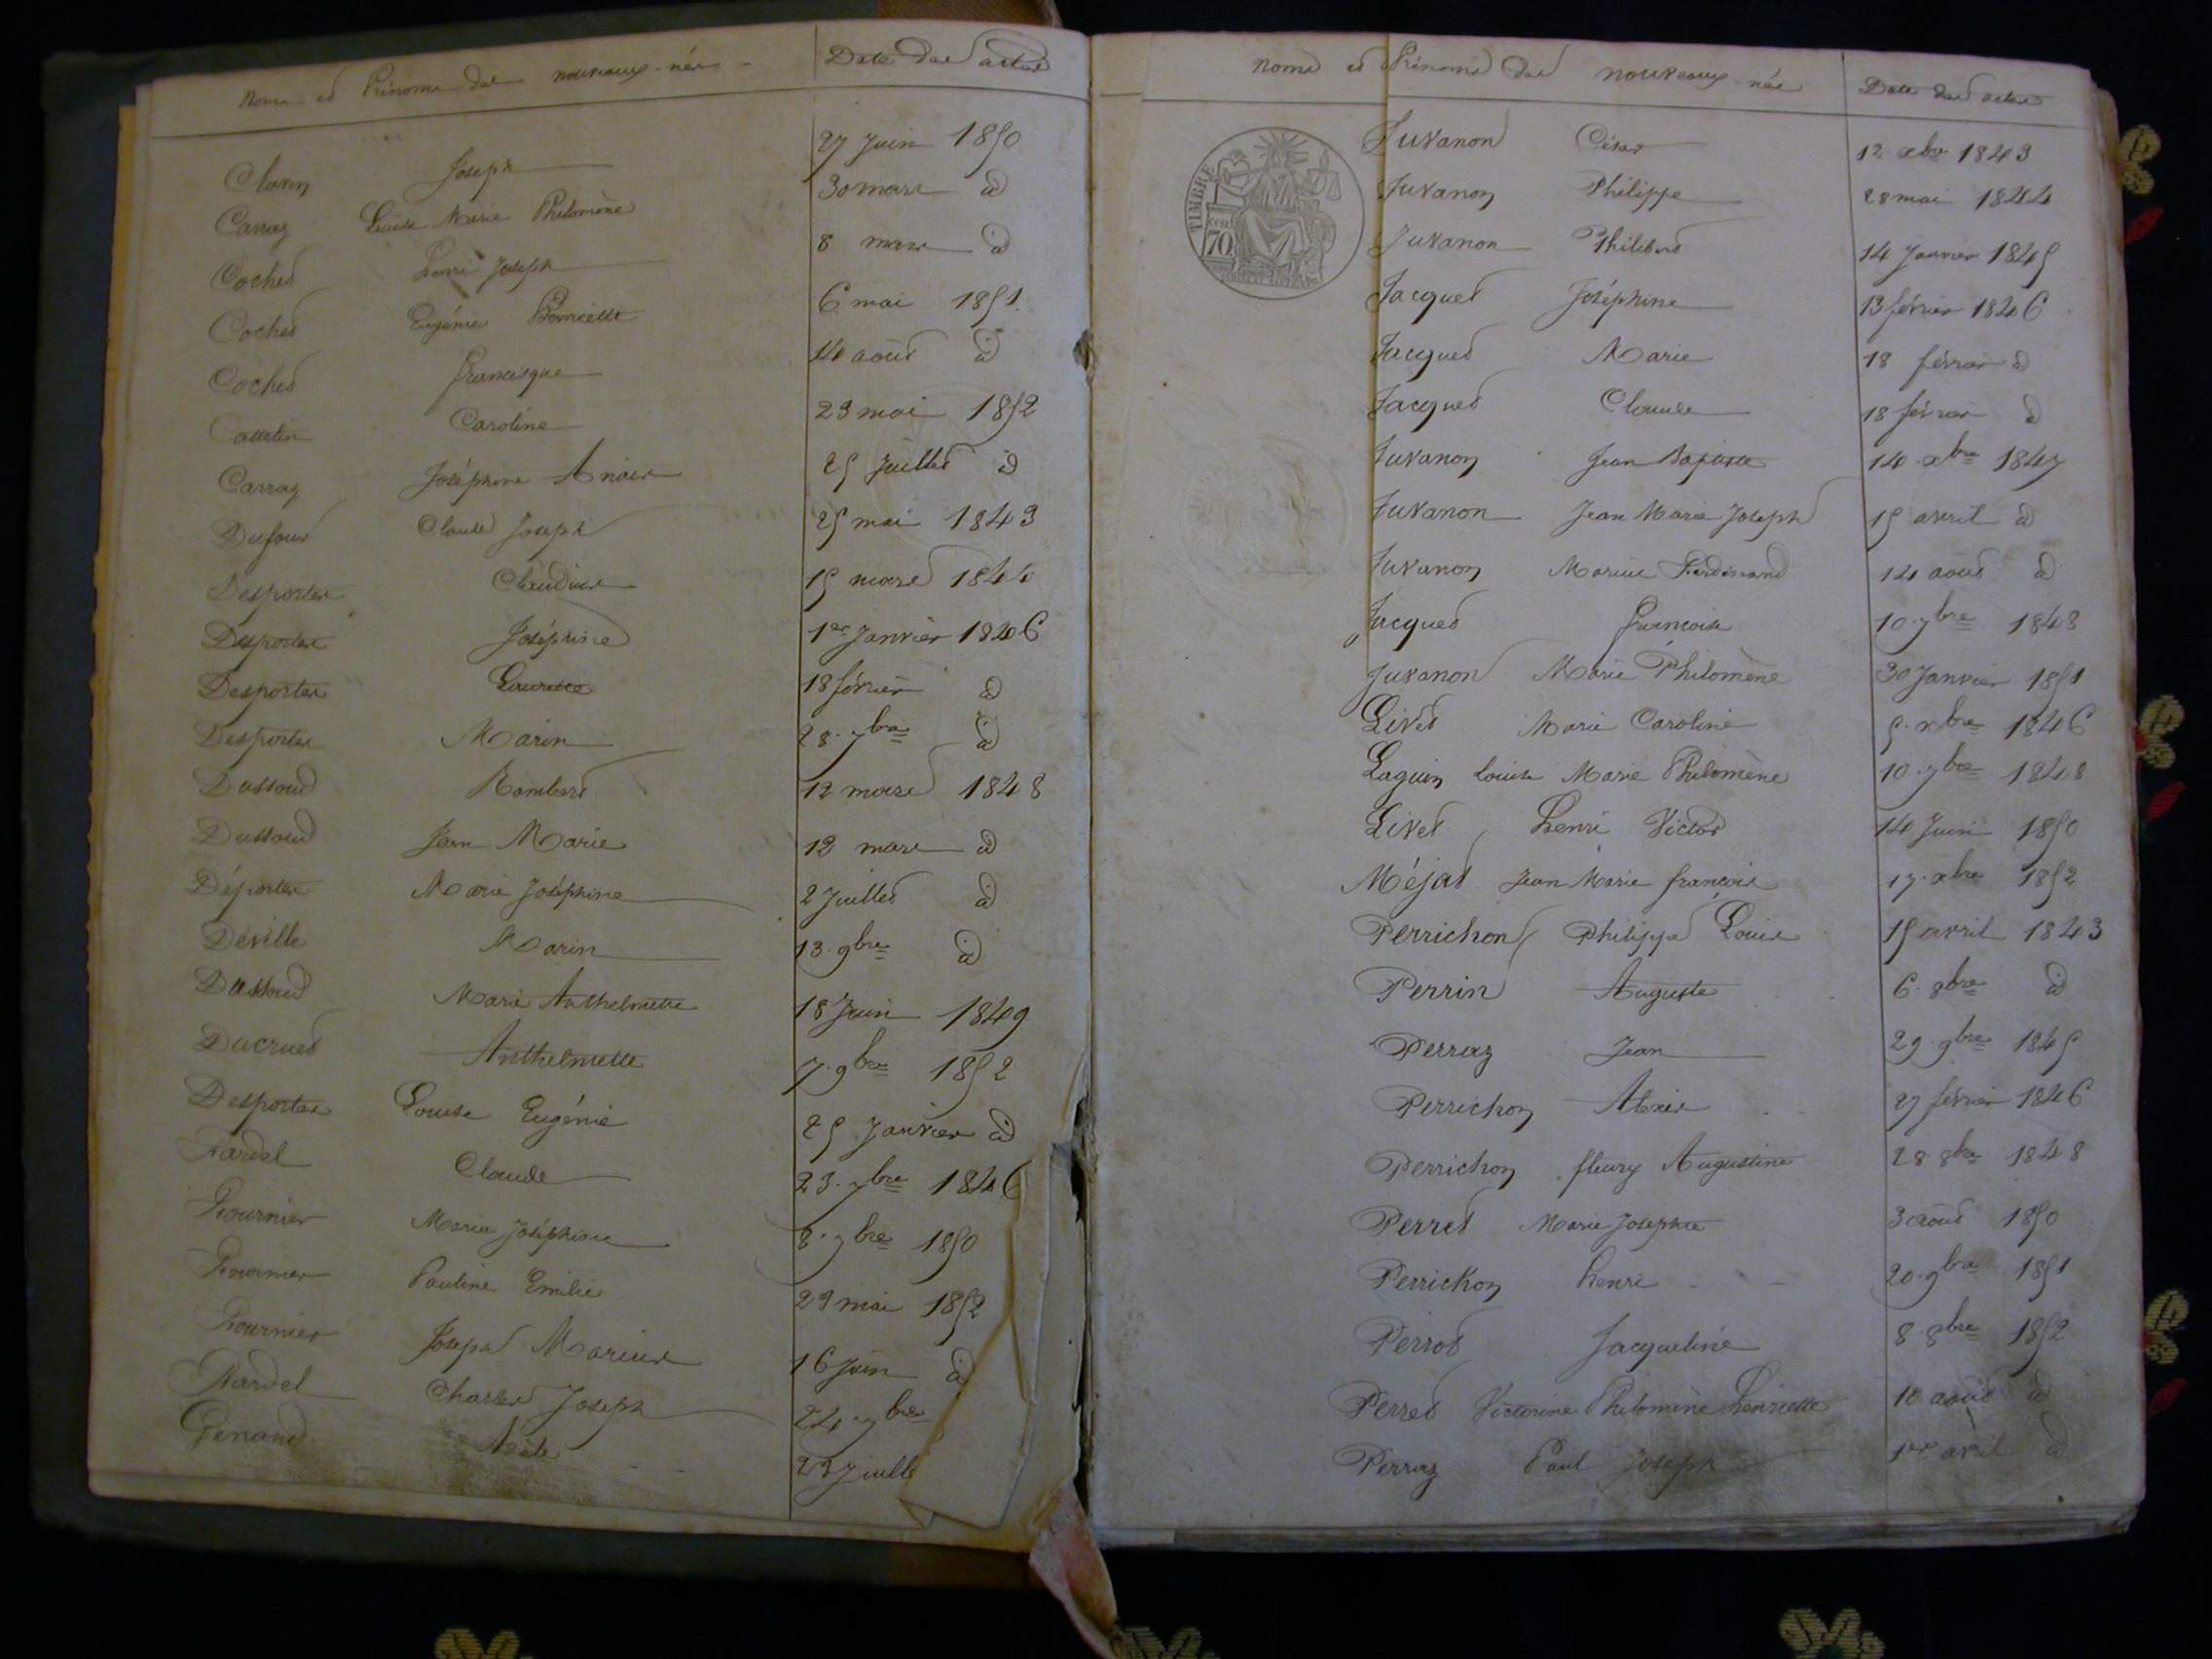 Noms et Prénoms des nouveaux-nés Date des actes
Clavin Joseph 27 Juin 1850
Carraz Louise Marie Philomène 30 mars d
Cochet Henri Joseph 8 mars d
Cochet Eugénie Henriette 6 mai 1851
Cochet Francisque 14 août d
Caroline 23 mai 1852
Carraz Joséphine Anaïs 25 Juillet d
Dufour Claude Joseph 25 mai 1843
Desportes Claudius 15 mars 1844
Desportes Joséphine 1er Janvier 1846
Desportes 18 février d
Desportes Marin 28. 7bre d
Dussoud Rambert 12 mars 1848
Dussoud Jean Marie 12 mars d
Déportes Marie Joséphine 2 Juillet d
Déville Marin 13. 9bre d
Dussoud Marie Anthelmette 18 Juin 1849
Ducruet Anthelmette 7. 9bre 1852
Desportes Louise Eugénie 25 Janvier d
Fardel Claude 23. 7bre 1846
Fournier Marie Joséphine 8. 7bre 1850
Fournier Pauline Emilie 29 mai 1852
Fournier Joseph Marius 16 Juin d
Fardel Charles Joseph 24 7bre
Genand 22 Juill
Noms et Prénoms des nouveaux-nés Date des actes
TIMBRE
70
Juvanon César 12 xbre 1843
Juvanon Philippe 28 mai 1844
Juvanon Philibert 14 Janvier 1845
Jacquet Joséphine 13 février 1846
Jacquet Marie 18 février d
Jacquet Claude 18 février d
Juvanon Jean Baptiste 14. xbre 1847
Juvanon Jean Marie Joseph 15 avril d
Juvanon Marius Ferdinand 14 août d
Jacquet Françoise 10. 7bre 1848
Juvanon Marie Philomène 30 Janvier 1851
Livet Marie Caroline 5. xbre 1846
Laguin Louise Marie Philomène 10. 7bre 1848
Livet Henri Victor 14 Juin 1850
Méjat Jean Marie françois 17. xbre 1852
Perrichon Philippe Louis 15 avril 1843
Perrin Auguste 6. 8bre d
Perraz Jean 29. 9bre 1845
Perrichon Alexis 27 février 1846
Perrichon fleury Augustine 28. 8bre 1848
Perret Marie Josephte 3 août 1850
Perrichon henri 20. 9bre 1851
Perrot Jacqueline 8 8bre 1852
Perret Victorine Philomène Henriette 10 août d
Perraz Paul Joseph 1er avril d